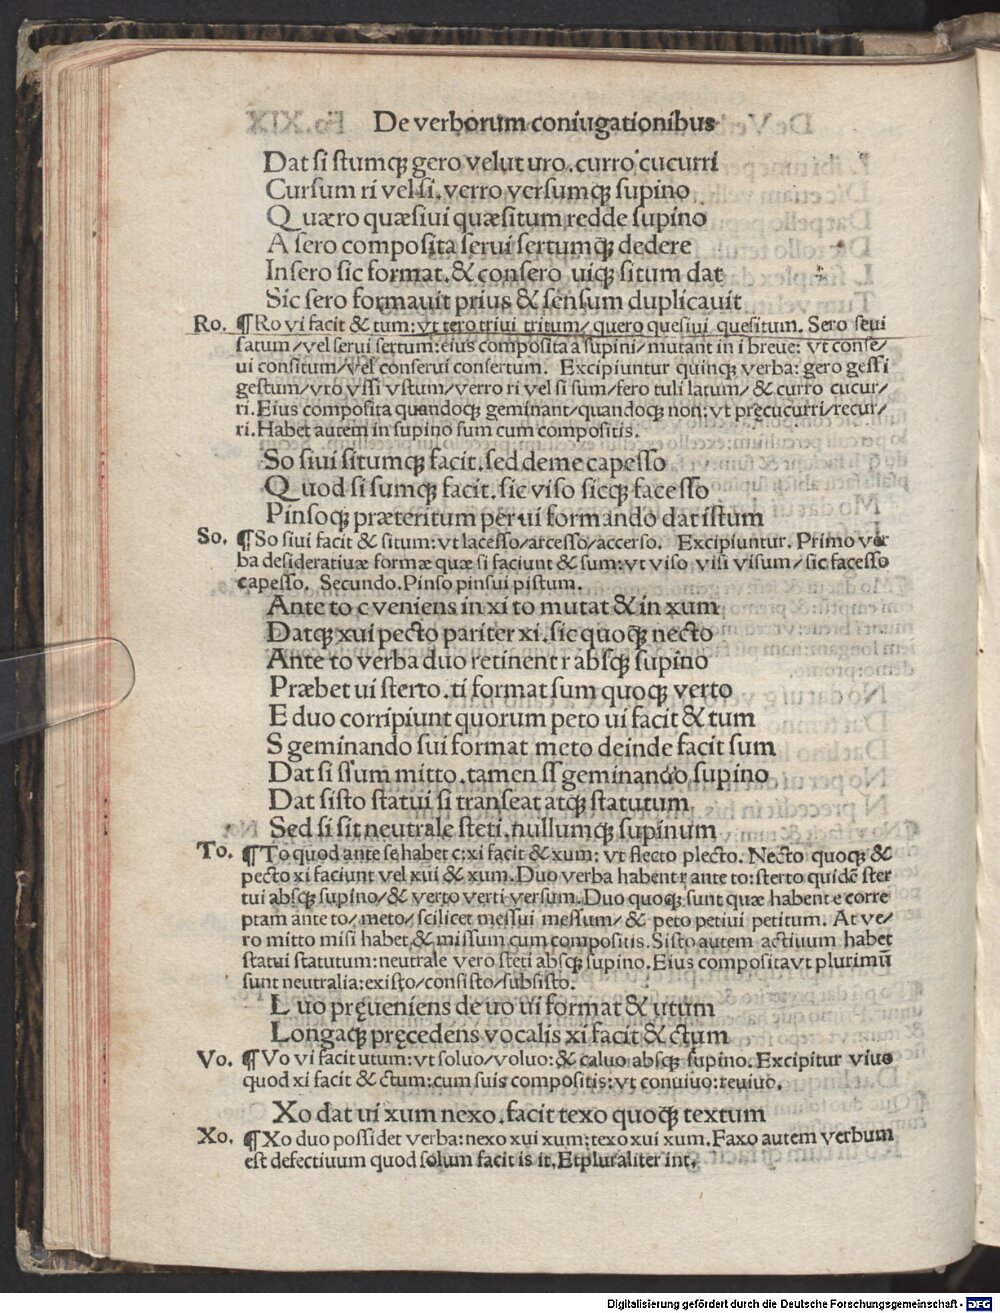 De verborum coniugationibus
Dat si stumq; gero velut uro. curro cucurri
Cursum ri vel si. verro versumq; supino
Quæro quæsiui quæsitum redde supino
A sero composita serui sertumq; dedere
Insero sic format. & consero uiq; situm dat
Sic sero formauit prius & sensum duplicauit
Ro. ¶Ro vi facit & tum: vt tero triui tritum/ quero quesiui quesitum. Sero seui
satum/vel serui sertum: eius composita a supini/mutant in i breue: vt conse/
ui consitum/vel conserui consertum. Excipiuntur quinq; verba: gero gessi
gestum/vro vssi vstum/verro ri vel si sum/fero tuli latum/ & curro cucur/
ri. Eius composita quandoq; geminant/quandoq; non: vt pręcucurri/recur/
ri. Habet autem in supino sum cum compositis.
So siui situmq; facit. sed deme capesso
Quod si sumq; facit. sic viso sicq; facesso
Pinsoq; præteritum per ui formando dat istum
So. ¶So siui facit & situm: vt lacesso/arcesso/accerso. Excipiuntur. Primo ver
ba desideratiuæ formæ quæ si faciunt & sum: vt viso visi visum/sic facesso
capesso. Secundo. Pinso pinsui pistum.
Ante to c veniens in xi to mutat & in xum
Datq; xui pecto pariter xi. sic quoq; necto
Ante to verba duo retinent r absq; supino
Præbet ui sterto. ti format sum quoq; verto
E duo corripiunt quorum peto ui facit & tum
S geminando sui format meto deinde facit sum
Dat si ssum mitto. tamen ss geminando supino
Dat sisto statui si transeat atq; statutum
Sed si sit neutrale steti. nullumq; supinum
To. ¶To quod ante se habet c: xi facit & xum: vt flecto plecto. Necto quoq; &
pecto xi faciunt vel xui & xum. Duo verba habent r ante to: sterto quidē ster
tui absq; supino/& verto verti versum. Duo quoq; sunt quæ habent e corre
ptam ante to/meto/scilicet messui messum/ & peto petiui petitum. At ve/
ro mitto misi habet & missum cum compositis. Sisto autem actiuum habet
statui statutum: neutrale vero steti absq; supino. Eius composita vt plurimū
sunt neutralia: existo/consisto/subsisto.
L uo pręueniens de uo ui format & utum
Longaq; pręcedens vocalis xi facit & ctum
Vo. ¶Vo vi facit utum: vt soluo/voluo: & caluo absq; supino. Excipitur viuo
quod xi facit & ctum: cum suis compositis: vt conuiuo: reuiuo.
Xo dat ui xum nexo. facit texo quoq; textum
Xo. ¶Xo duo possidet verba: nexo xui xum: texo xui xum. Faxo autem verbum
est defectiuum quod solum facit is it. Et pluraliter int.
Digitalisierung gefördert durch die Deutsche Forschungsgemeinschaft - DFG